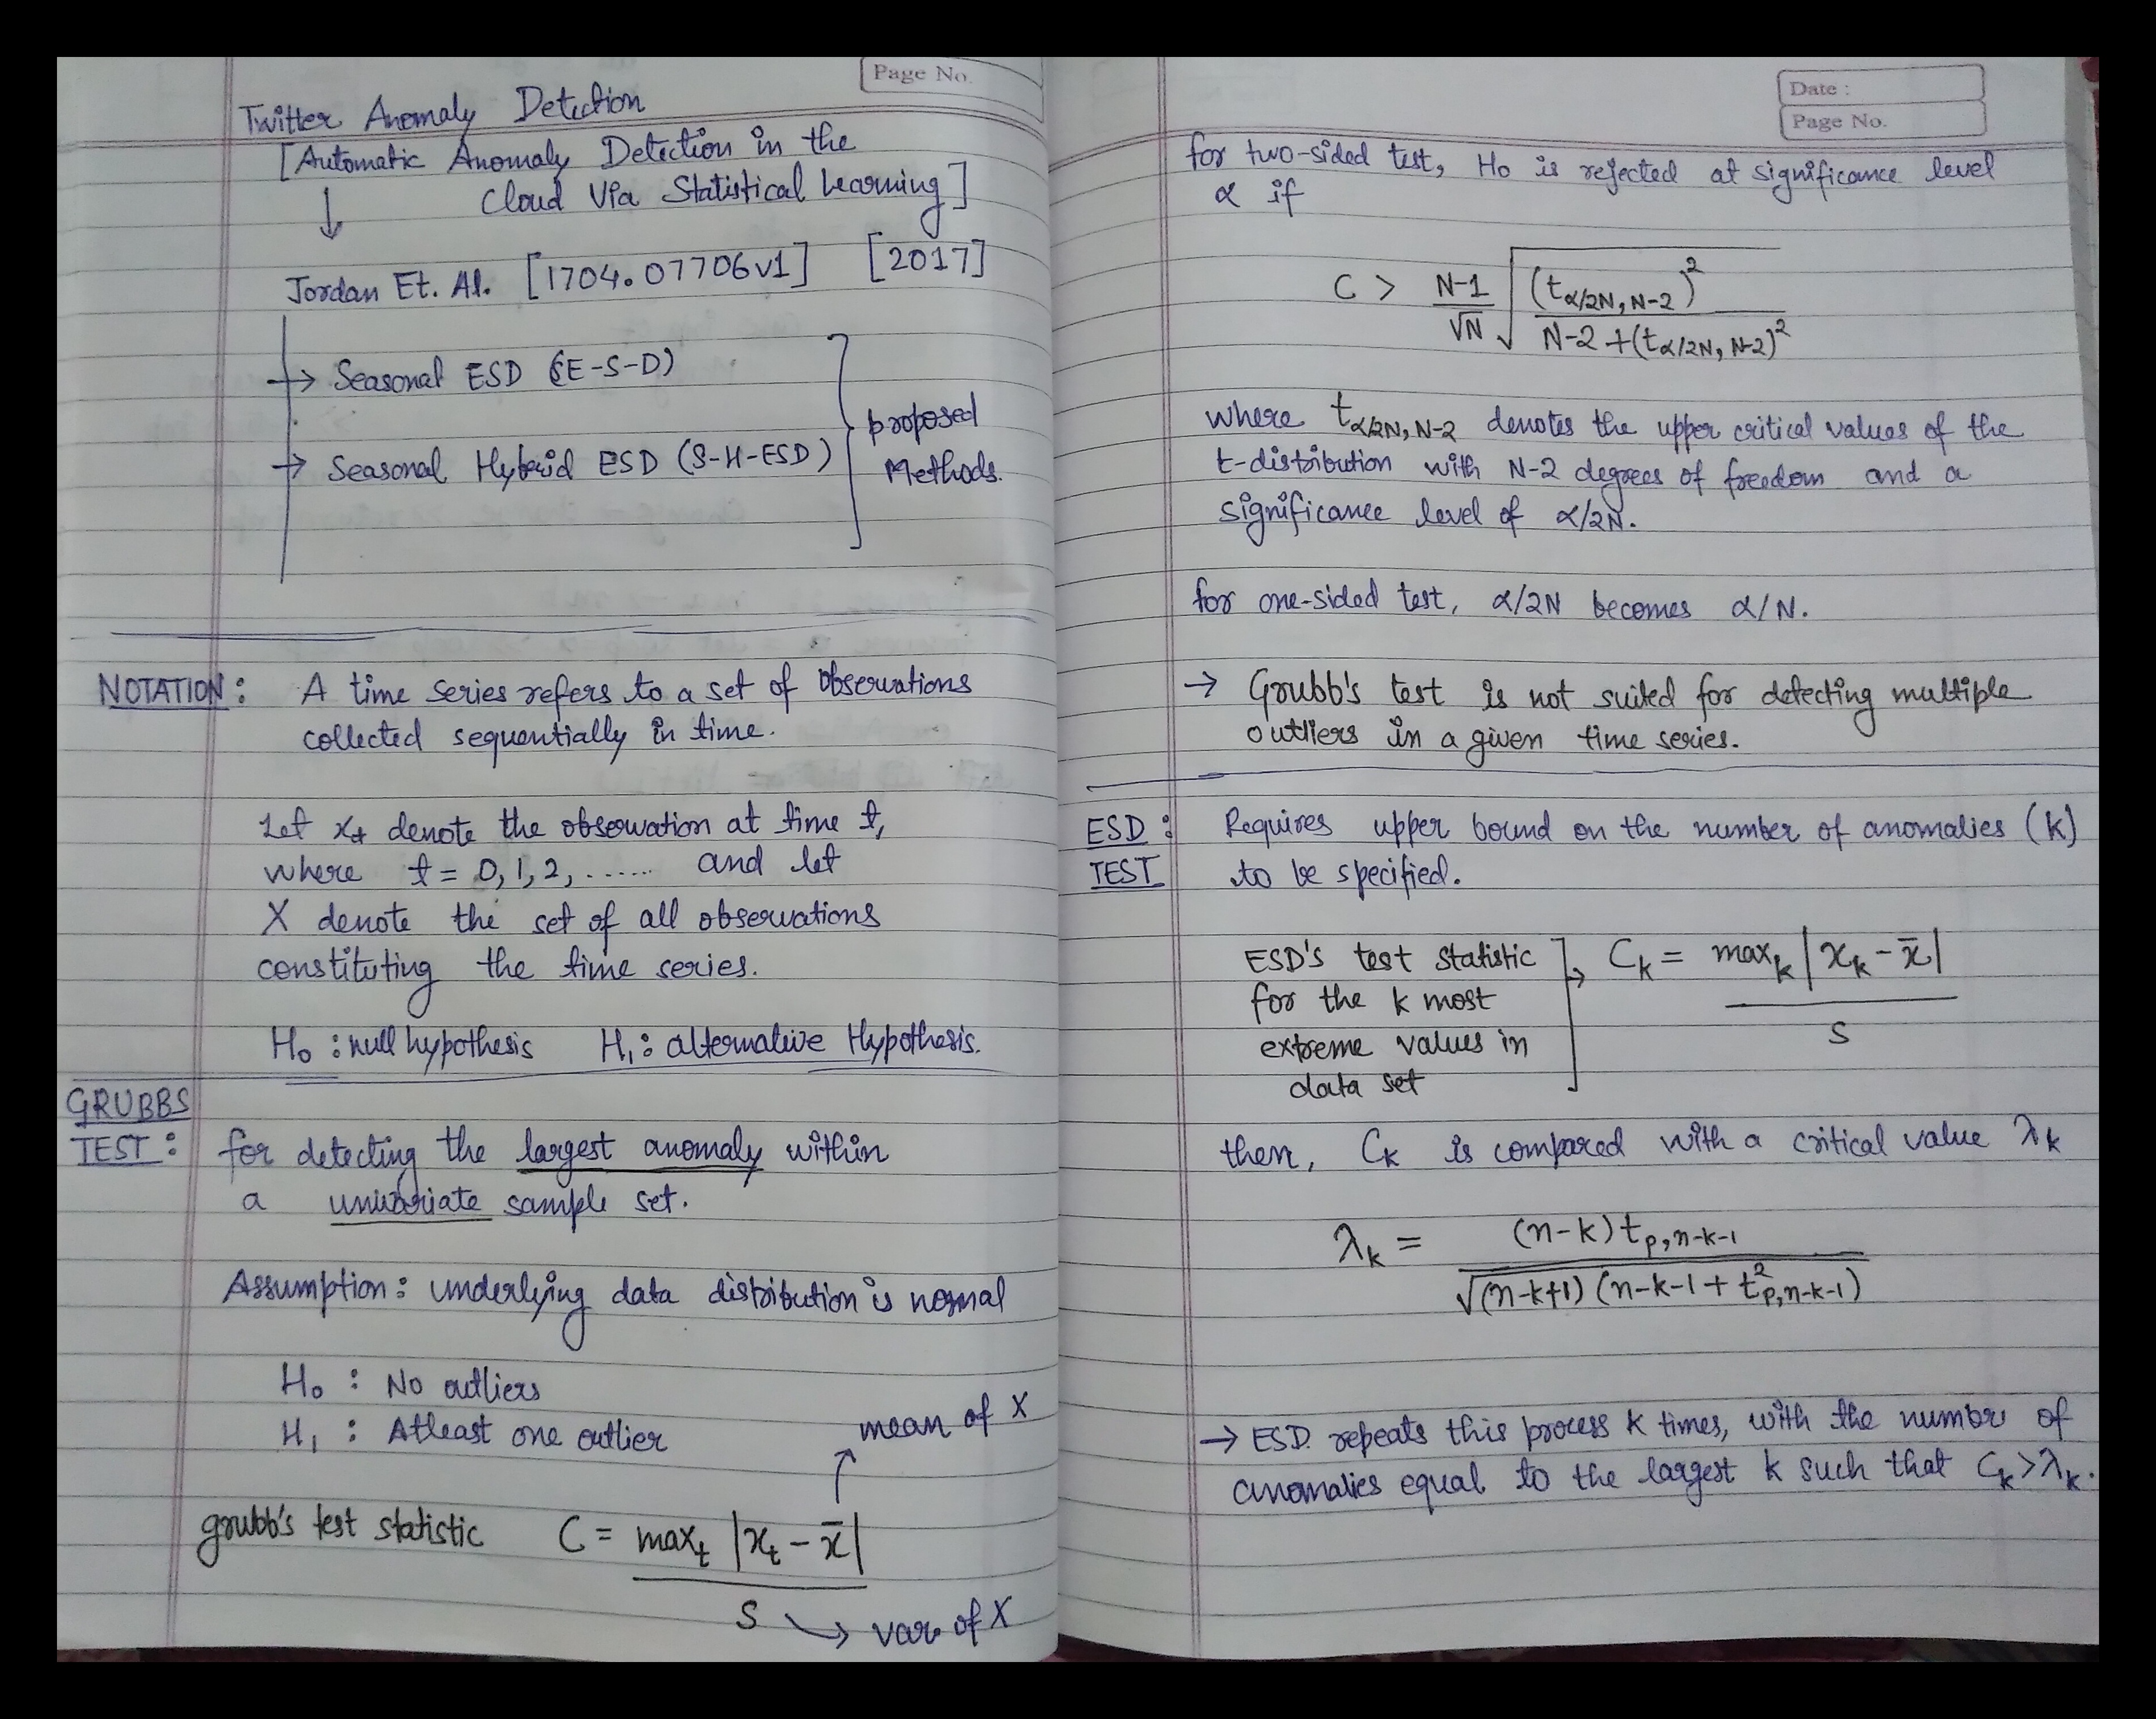 Page No.
Twitter Anomaly Detection
[Automatic Anomaly Detection in the
Cloud Via Statistical Learning]
↓
Jordan Et. Al. [1704.07706v1] [2017]
→ Seasonal ESD (E-S-D)
→ Seasonal Hybrid ESD (S-H-ESD)
proposed
Methods.
NOTATION: A time series refers to a set of Observations
collected sequentially in time.
Let xt denote the observation at time t,
where t = 0, 1, 2, ...... and let
X denote the set of all observations
constituting the time series.
H₀ : null hypothesis H₁ : alternative Hypothesis.
GRUBBS
TEST: for detecting the largest anomaly within
a univariate sample set.
Assumption: underlying data distribution is normal
H₀ : No outliers
H₁ : Atleast one outlier
mean of X
grubb's test statistic C = max_t |x_t - x̄|
S → var. of X
Date :
Page No.
for two-sided test, H₀ is rejected at significance level
α if
C > N-1 / √N √ (t_α/2N, N-2)² / N-2 + (t_α/2N, N-2)²
where t_α/2N, N-2 denotes the upper critical values of the
t-distribution with N-2 degrees of freedom and a
significance level of α/2N.
for one-sided test, α/2N becomes α/N.
→ Grubb's test is not suited for detecting multiple
outliers in a given time series.
ESD : Requires upper bound on the number of anomalies (k)
TEST to be specified.
ESD's test statistic
for the k most
extreme values in
data set
C_k = max_k |x_k - x̄|
S
then, C_k is compared with a critical value λ_k
λ_k = (n-k) t_p,n-k-1
√(n-k+1) (n-k-1 + t²_p,n-k-1)
→ ESD. repeats this process k times, with the number of
anomalies equal to the largest k such that C_k > λ_k.